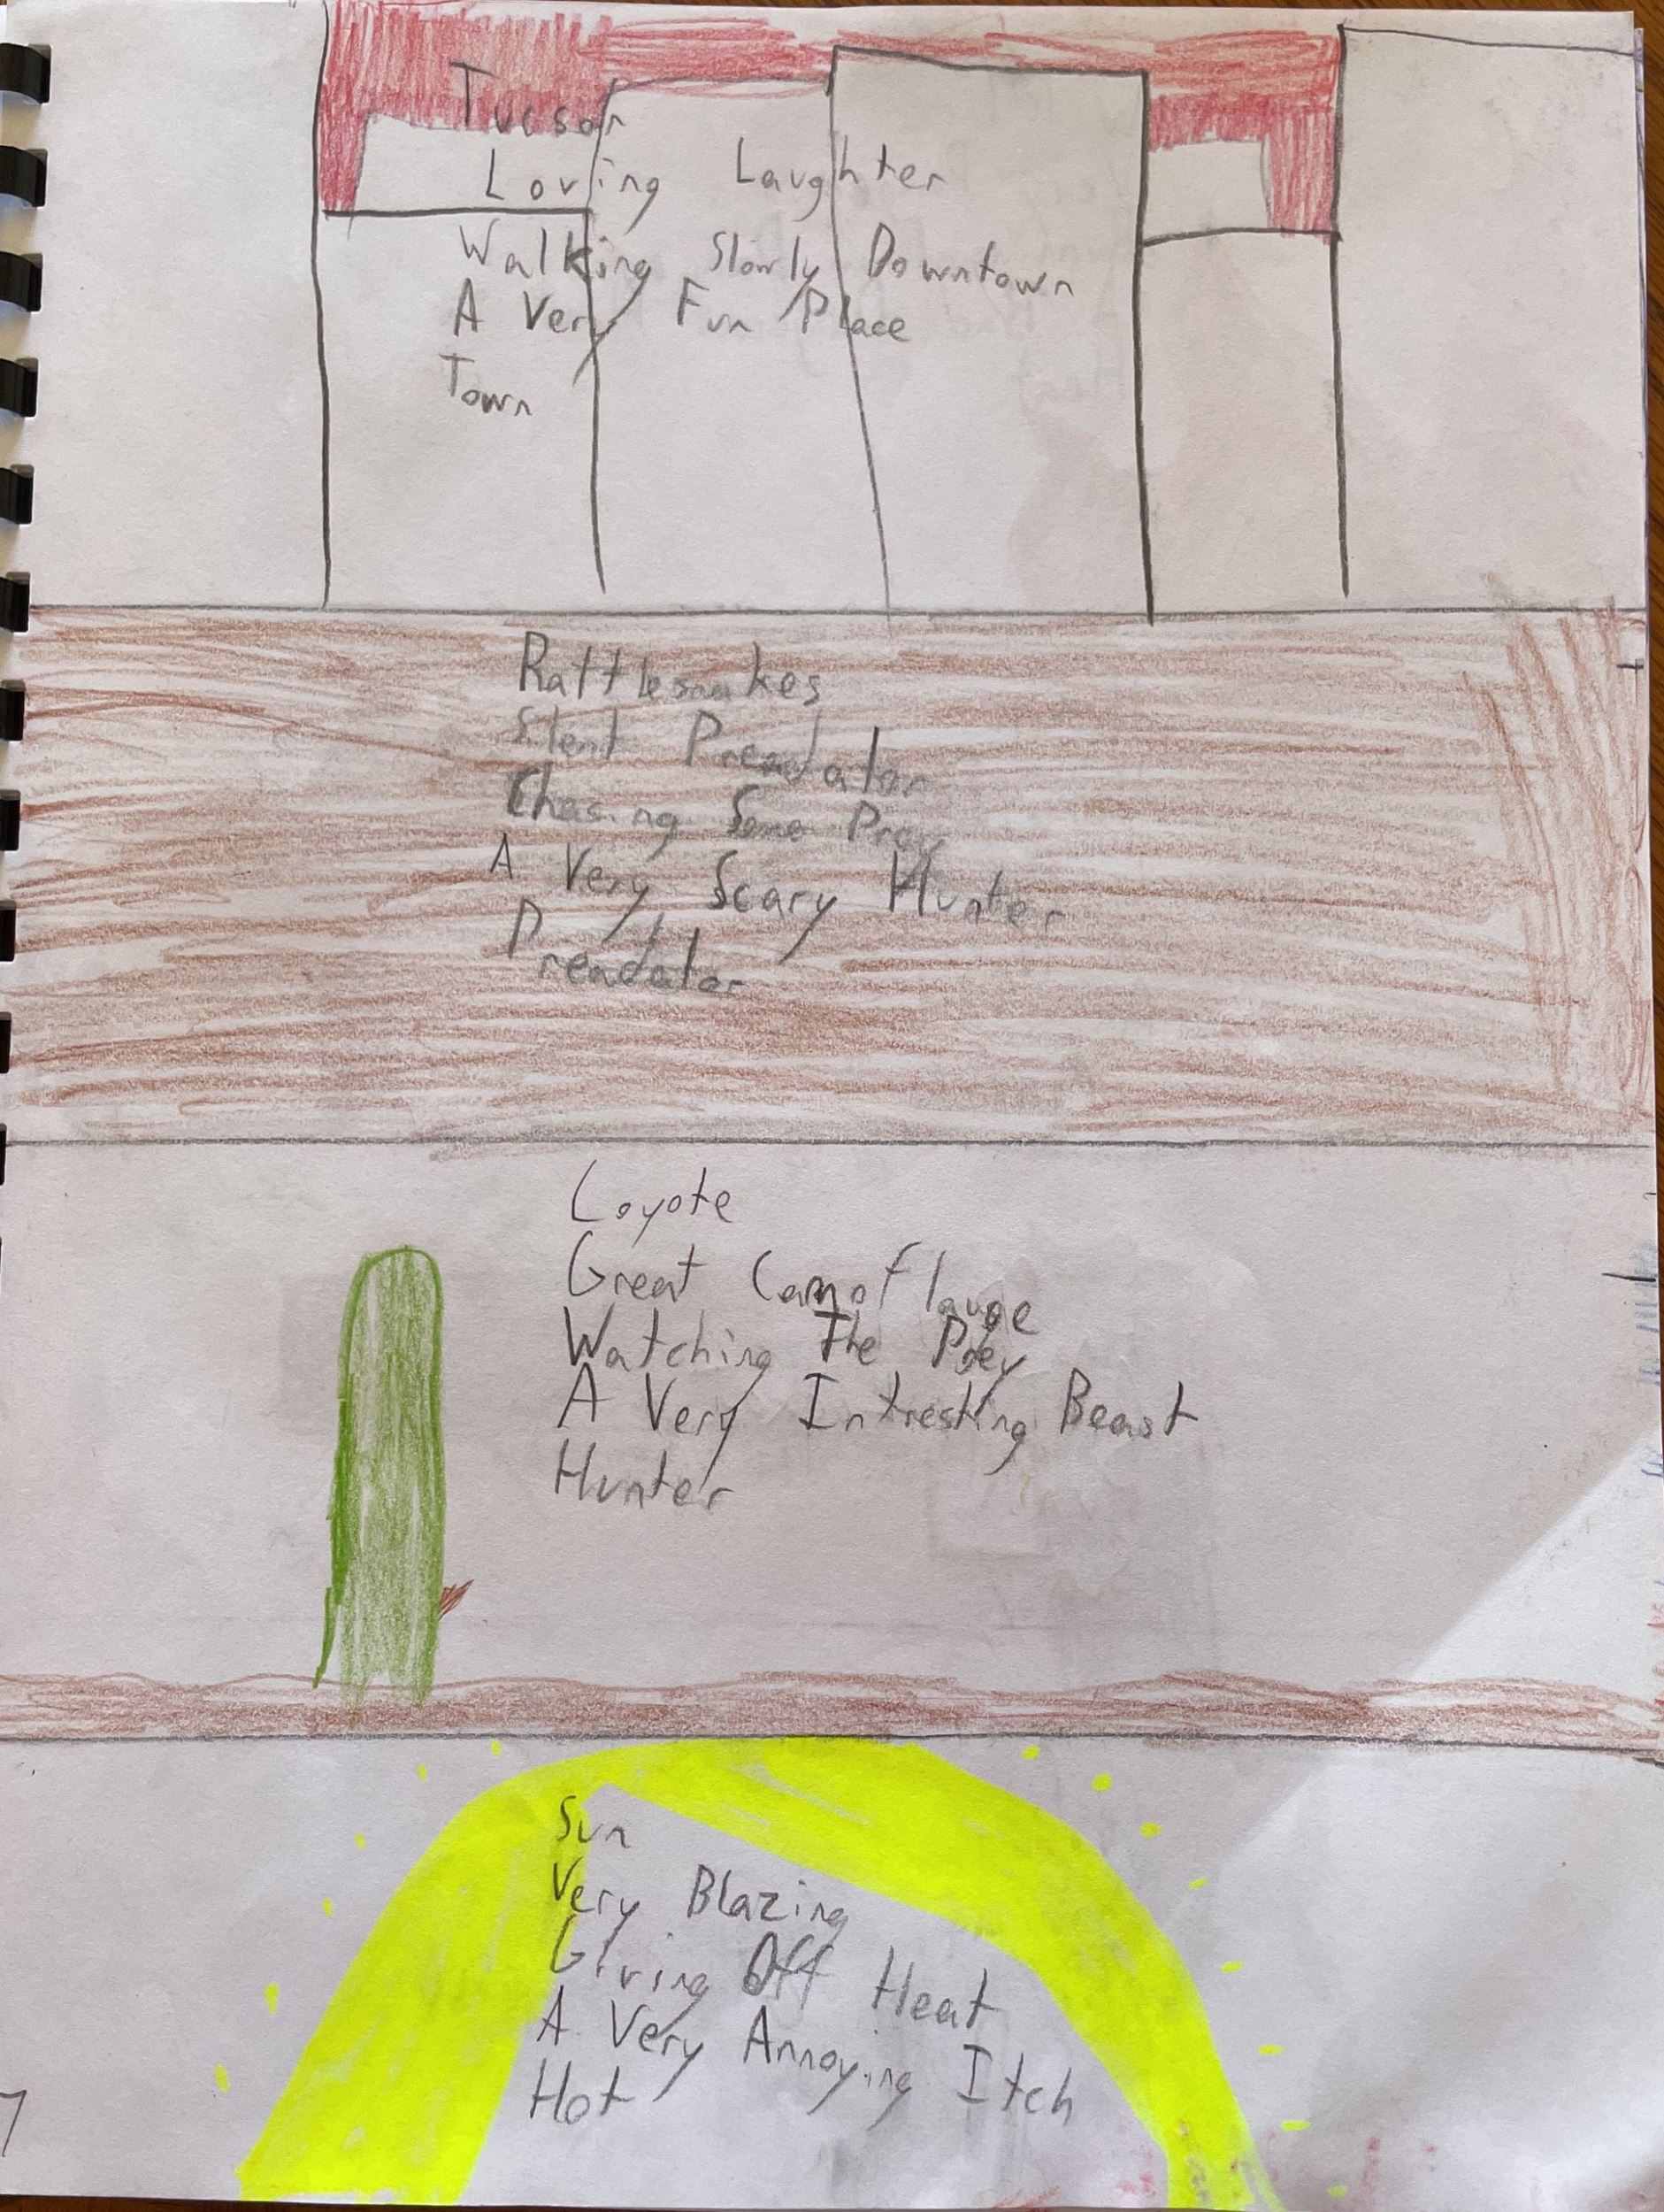 Tucson
Loving Laughter
Walking Slowly Downtown
A Very Fun Place
Town
Rattlesnakes
Silent Preadator
Chasing Some Prey
A Very Scary Hunter
Preadator
Coyote
Great Camoflauge
Watching The Prey
A Very Intresting Beast
Hunter
Sun
Very Blazing
Giving Off Heat
A Very Annoying Itch
Hot
7